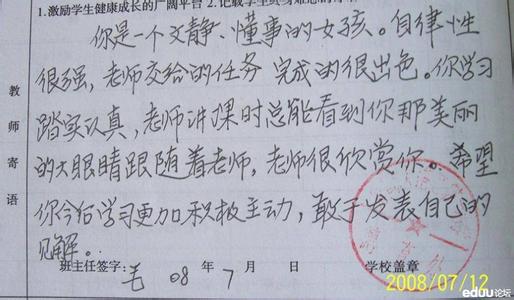 1.激励学生健康成长的广阔平台 2.记载学生
你是一个文静、懂事的女孩。自律性
很强，老师交给的任务完成的很出色。你学习
踏实认真，老师讲课时总能看到你那美丽
的大眼睛跟随着老师，老师很欣赏你。希望
你今后学习更加积极主动，敢于发表自己的
见解。
教师寄语
班主任签字：毛 08年7月 日 学校盖章
2008/07/12
eduu论坛